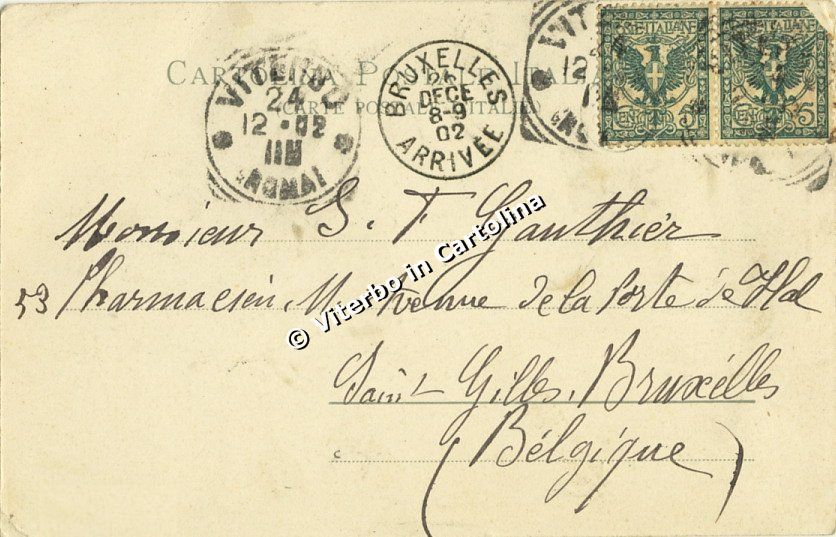 CARTOLINA POSTALE ITALIANA
(CARTE POSTALE D'ITALIE)
VITERBO
24
12 - 02
11M
(ROMA)
BRUXELLES
26
DECE
8-9
02
ARRIVÉE
VITERBO
12
POSTE ITALIANE
CENT. 5
POSTE ITALIANE
CENT. 5
Monsieur S. F. Gauthier
53 Pharmacien, Avenue de la Porte de Hal
Saint Gilles, Bruxélles
(Bélgique)
© Viterbo in Cartolina